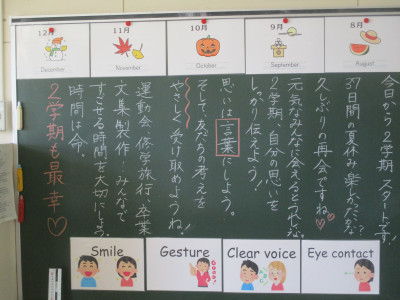 12月
December
11月
November
10月
October
9月
September
8月
August
今日から2学期スタートです!
37日間の夏休み楽しかったかな?
久しぶりの再会ですね♡♡
元気なみんなに会えるとうれしいな
2学期、自分の思いを
しっかり伝えよう!
思いは言葉にしよう。
そして、友だちの考えを
やさしく受け止めようね!
運動会、修学旅行、卒業
文集制作…みんなで
すごせる時間を大切にしよう
時間は命。
2学期も最幸♡
Smile
Gesture
Clear voice
Eye contact